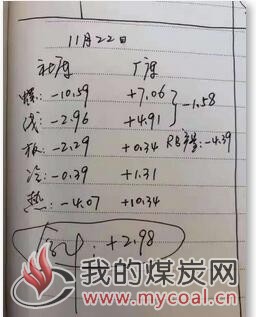 11月22日
社库 厂库
螺: -10.59 +7.06 -1.58
线: -2.96 +4.91
板: -2.29 +0.34 RB产量: -4.39
冷: -0.39 +1.31
热: -4.07 +10.34
+2.98
我的煤炭网
www.mycoal.cn